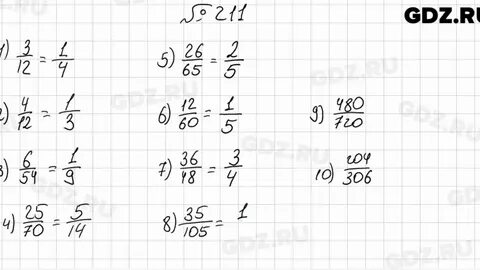 № 211
GDZ.RU
1) 3/12 = 1/4
2) 4/12 = 1/3
3) 6/54 = 1/9
4) 25/70 = 5/14
5) 26/65 = 2/5
6) 12/60 = 1/5
7) 36/48 = 3/4
8) 35/105 = 1
9) 480/720
10) 204/306
GDZ.RU
GDZ.RU
GDZ.RU
GDZ.RU